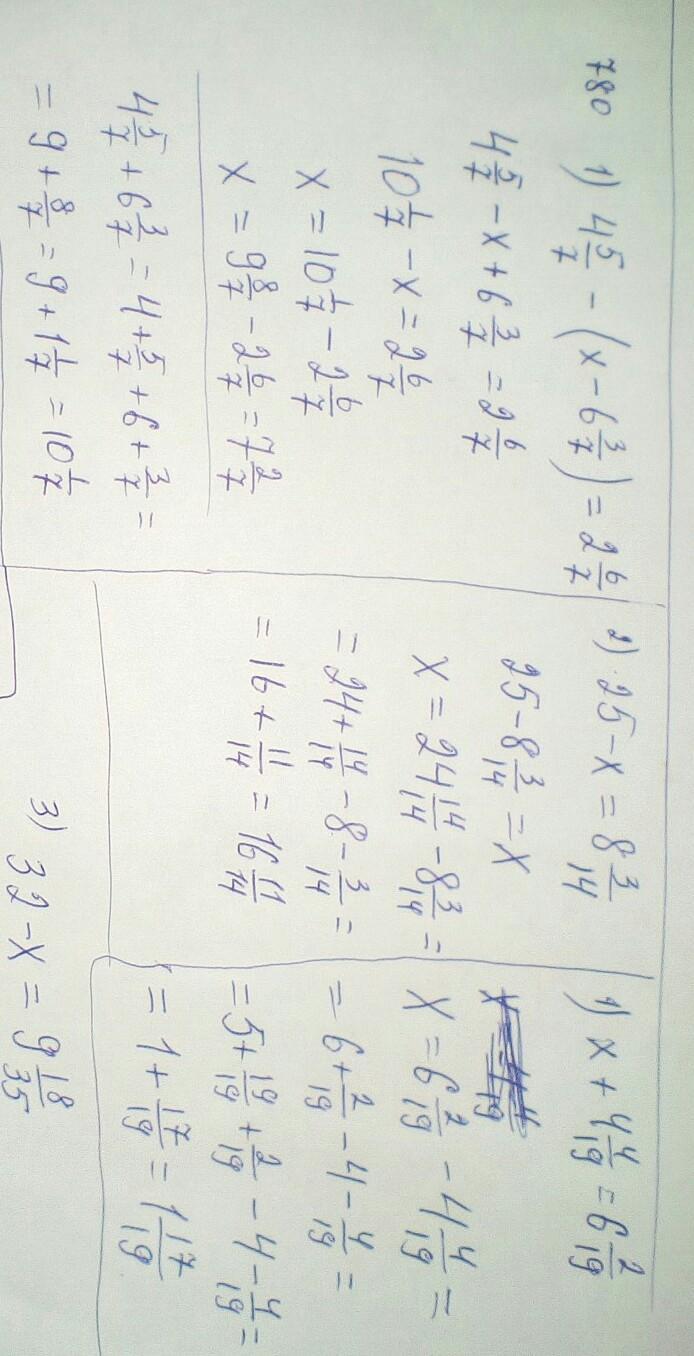 780 1) 4 5/7 - (x - 6 3/7) = 2 6/7
4 5/7 - x + 6 3/7 = 2 6/7
10 1/7 - x = 2 6/7
x = 10 1/7 - 2 6/7
x = 9 8/7 - 2 6/7 = 7 2/7
4 5/7 + 6 3/7 = 4 + 5/7 + 6 + 3/7 =
= 9 + 8/7 = 9 + 1 1/7 = 10 1/7
2) 25 - x = 8 3/14
25 - 8 3/14 = x
x = 24 14/14 - 8 3/14 =
= 24 + 14/14 - 8 - 3/14 =
= 16 + 11/14 = 16 11/14
3) 32 - x = 9 18/35
1) x + 4 4/19 = 6 2/19
x = 6 2/19 - 4 4/19 =
= 6 + 2/19 - 4 - 4/19 =
= 5 + 19/19 + 2/19 - 4 - 4/19 =
= 1 + 17/19 = 1 17/19